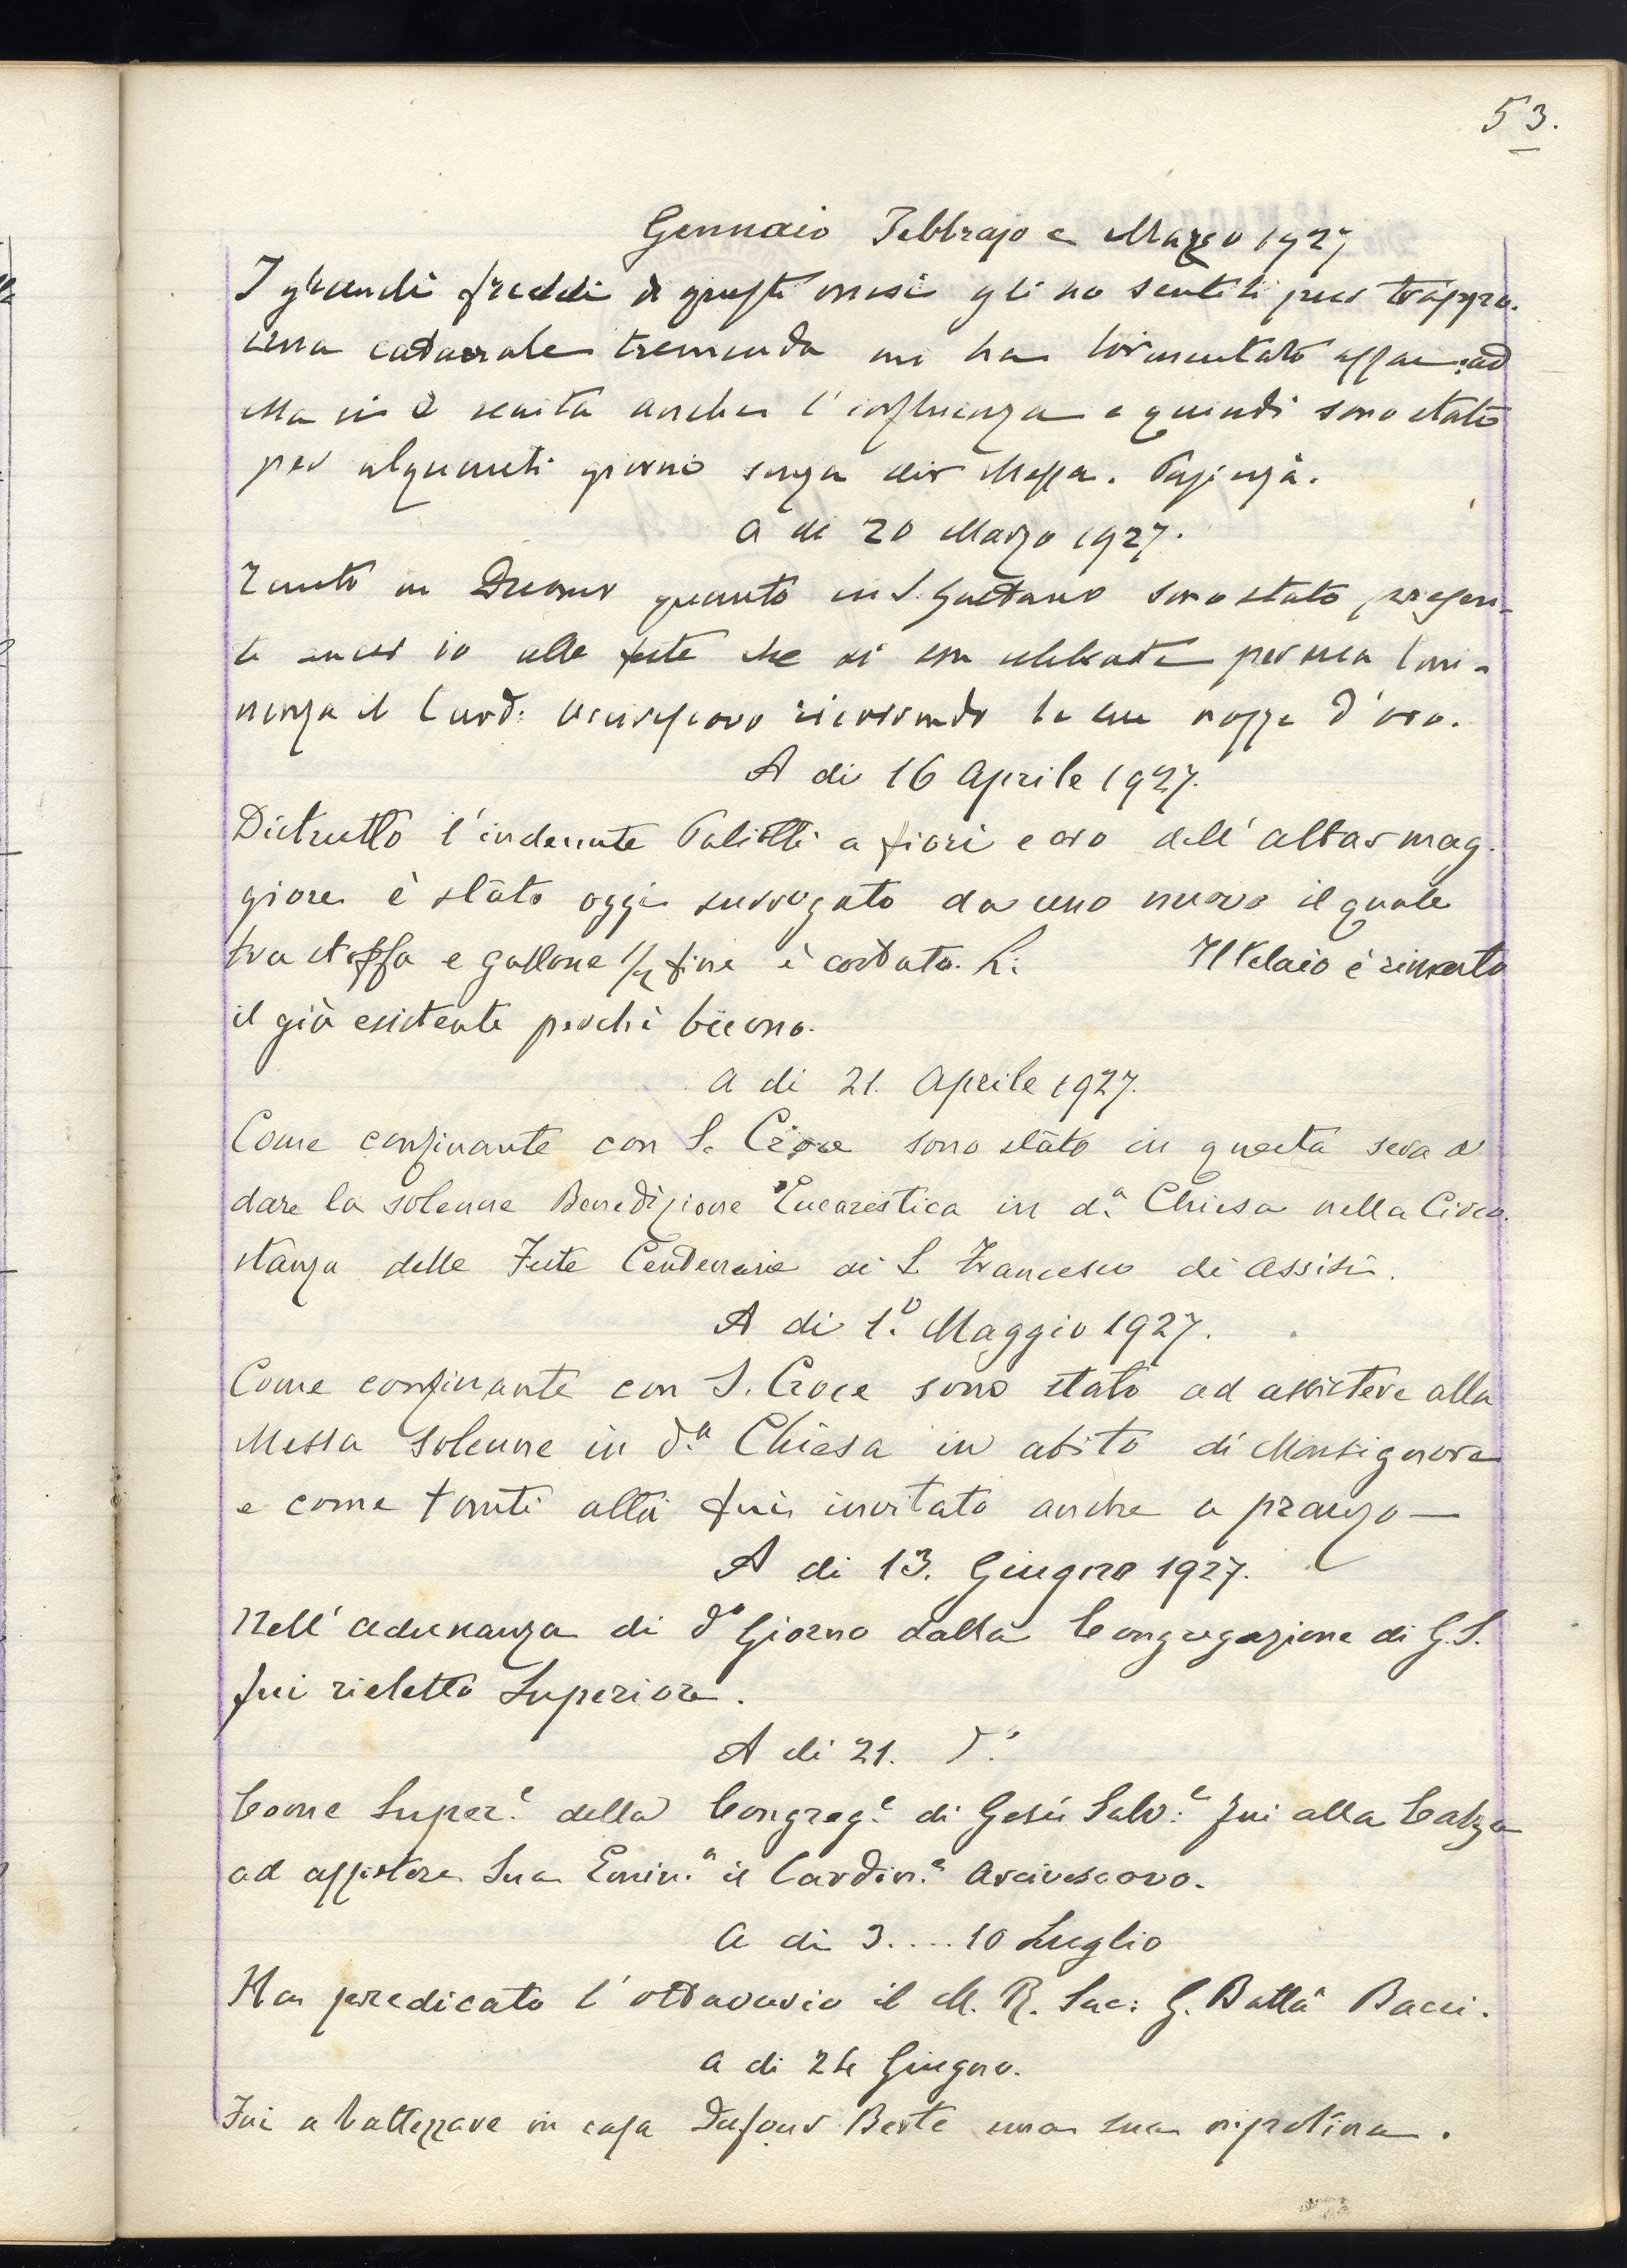 53.
Gennaio Febbrajo e Marzo 1927
I grandi freddi di questi mesi gli ho sentiti pur troppo.
una catarrale tremenda mi ha tormentato assai ed
Ma vi è venuta anche l'influenza e quindi sono stato
per alquanti giorni senza dir Messa. Pazienza.
A dì 20 Marzo 1927.
Tanto in Duomo quanto in S. Gaetano sono stato presen-
te ancor io alle feste che si son celebrate per sua Emi-
nenza il Card: Arcivescovo ricorrendo le sue nozze d'oro.
A dì 16 Aprile 1927.
Distrutto l'indecente Paliotti a fiori e oro dell'altar mag-
giore è stato oggi surrogato da uno nuovo il quale
tra stoffa e gallone 1/2 fine è costato. L: Il Telaio è rimasto
il già esistente perchè buono.
A dì 21. Aprile 1927.
Come confinante con S. Croce sono stato in questa sera a
dare la solenne Benedizione Eucaristica in d.a Chiesa nella Circo-
stanza delle Feste Centenarie di S. Francesco di Assisi.
A dì 1.o Maggio 1927.
Come confinante con S. Croce sono stato ad assistere alla
Messa Solenne in d.a Chiesa in abito di Monsignore
e come tanti altri fui invitato anche a pranzo —
A dì 13. Giugno 1927.
Nell'adunanza di do Giorno dalla Congregazione di G.S.
fui rieletto Superiore.
A dì 21. d.o
Come Super.e della Congreg.e di Gesù Salv.e fui alla Calza
ad assistere Sua Emin.a il Cardin.e Arcivescovo.
A dì 3....10 Luglio
Ha predicato l'ottavario il M. R. Sac: G. Batta Bacci.
A dì 24 Giugno.
Fui a battezzare in casa Dufour Berte una sua nipotina.